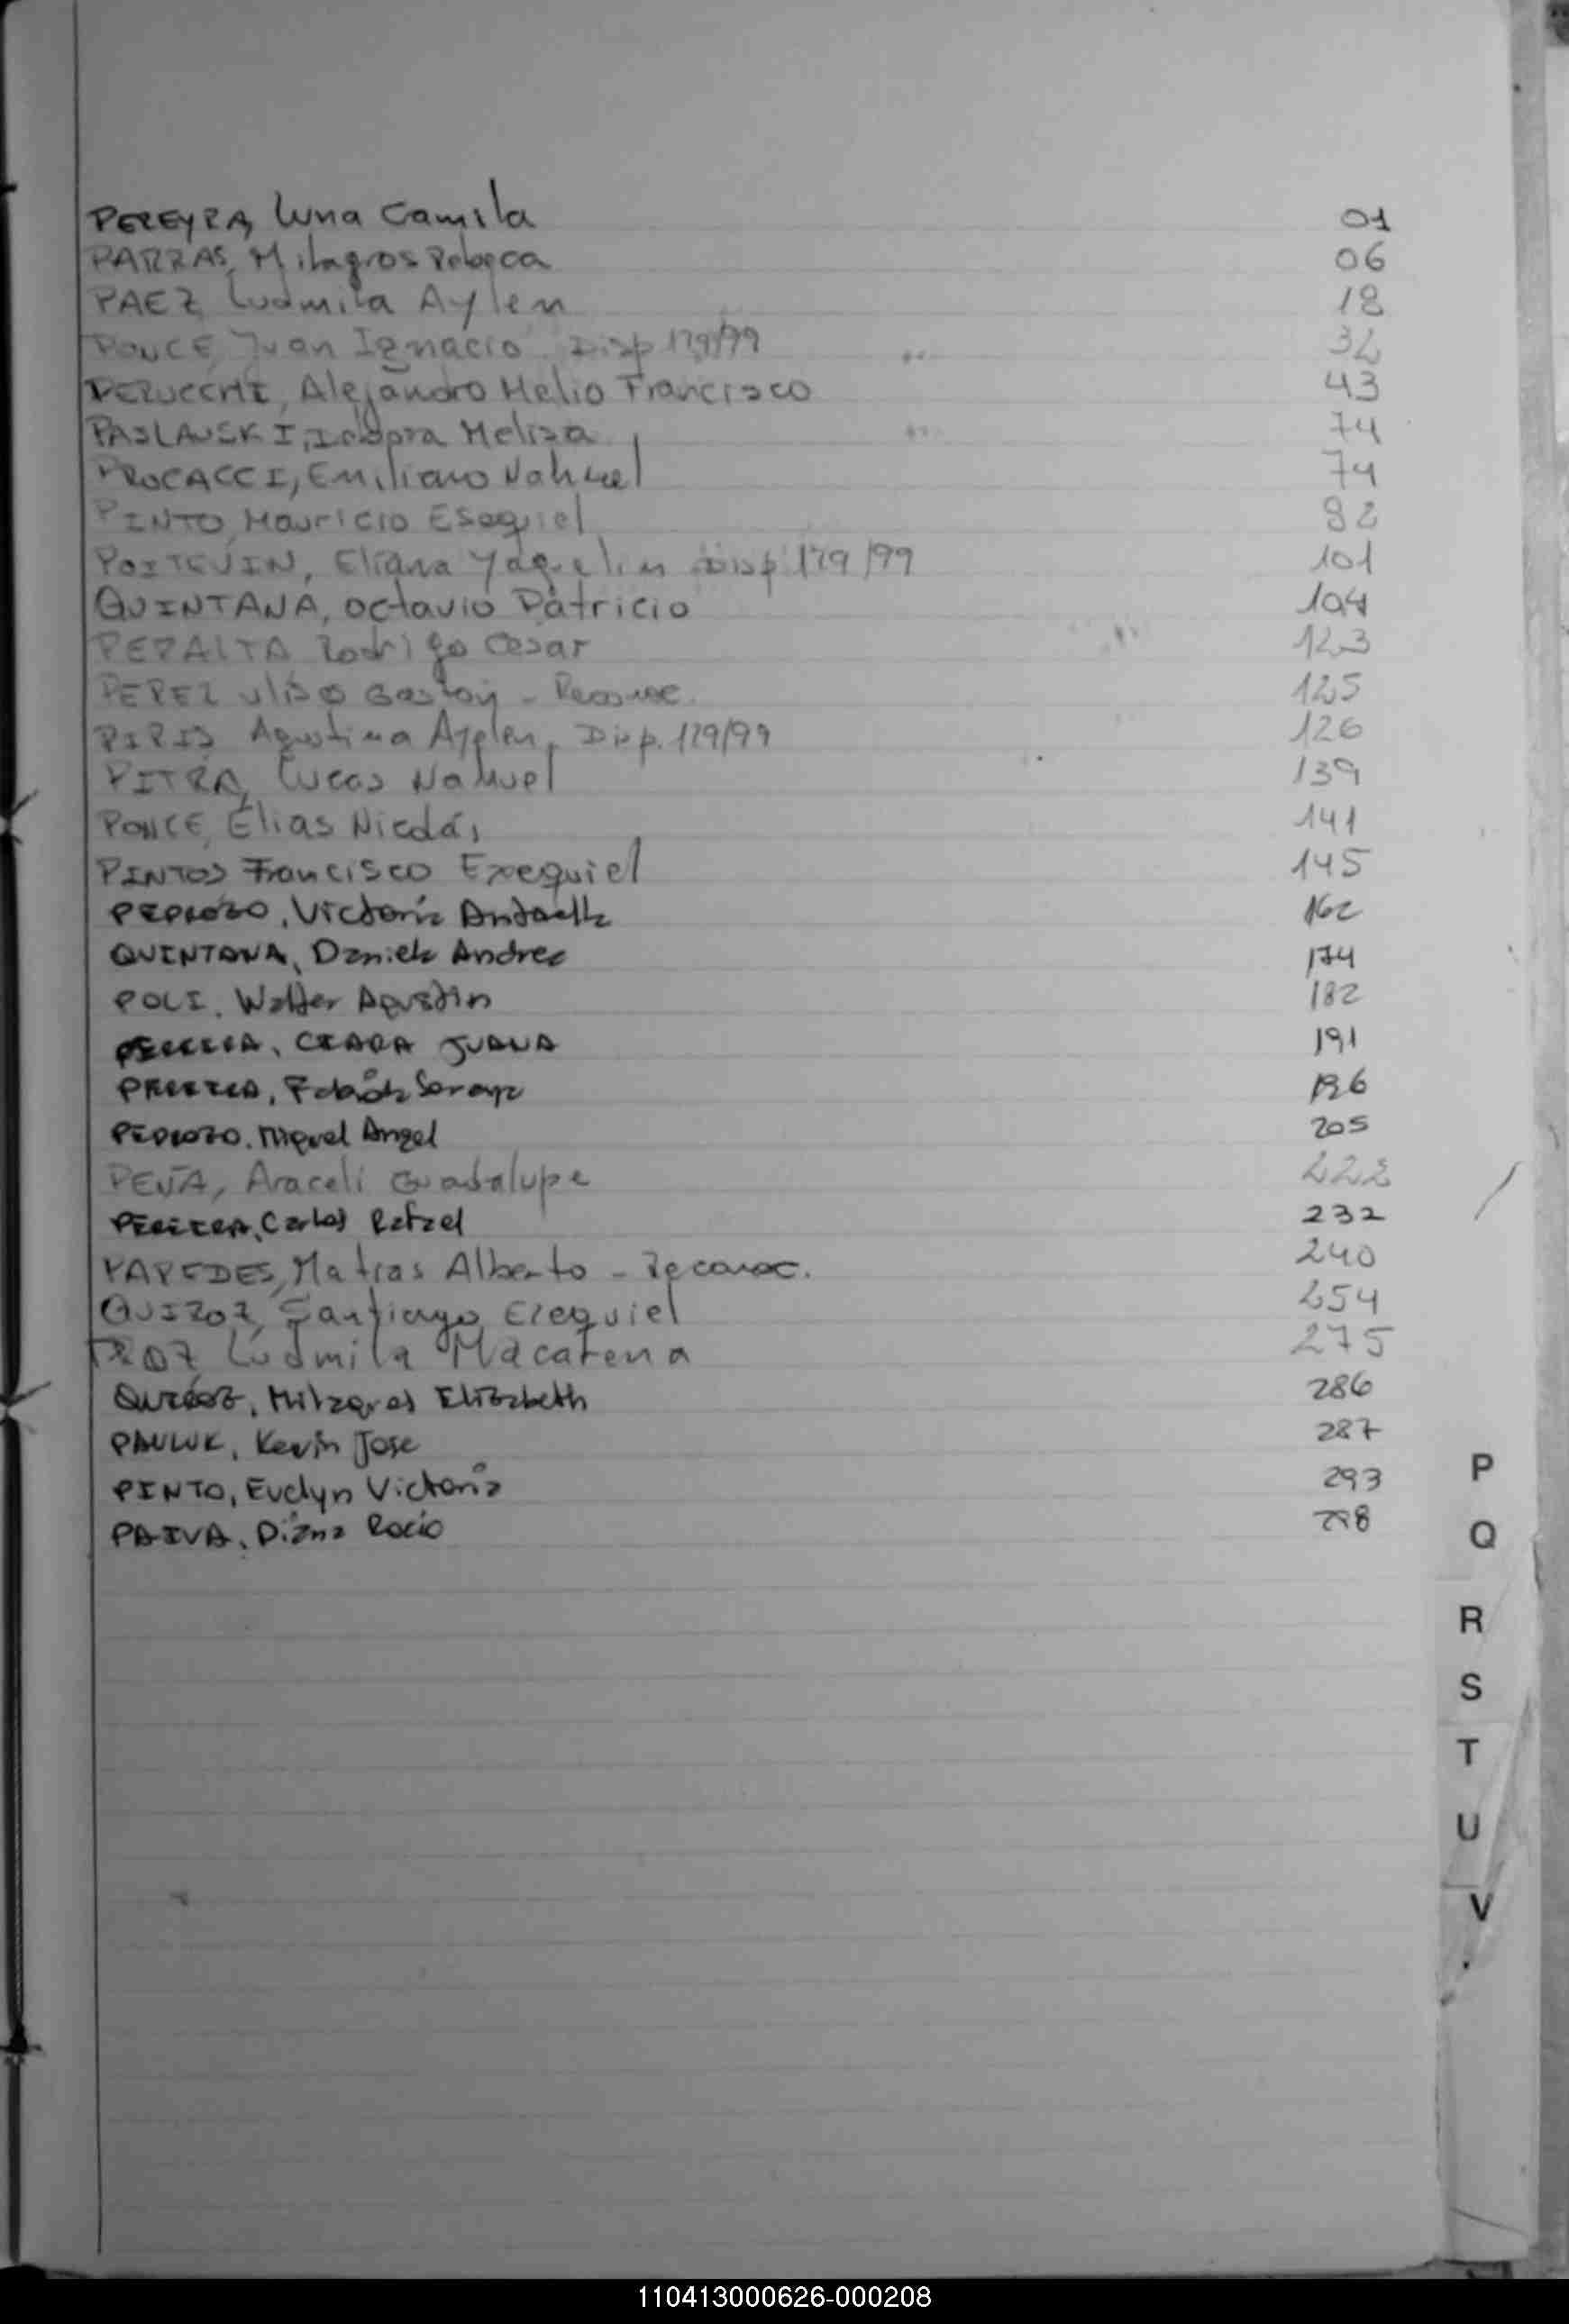 PEREYRA, Luna Camila 01
PARRAS, Milagros Rebeca 06
PAEZ, Ludmila Aylen 18
PONCE, Juan Ignacio Disp 129/99 32
PERUCCHI, Alejandro Helio Francisco 43
PASLAUSKI, Melisa 74
PROCACCI, Emiliano Nahuel 74
PINTO, Mauricio Esequiel 92
POITEVIN, Eliana Yaquelin Disp 129/99 101
QUINTANA, Octavio Patricio 104
PERALTA Rodrigo Cesar 123
PEREZ Gaston - 125
PIRIS Agustina Aylen, Disp. 129/99 126
PITRA, Lucas Nahuel 139
PONCE, Elias Nicolás 141
PINTOS Francisco Exequiel 145
PEDROZO, Victoria Antonella 162
QUINTANA, Daniela Andrea 174
POLI, Walter Agustin 182
PEREIRA, CIARA JUANA 191
PEREIRA, Soraya 196
PEDROZO, Miguel Angel 205
PEÑA, Araceli Guadalupe 222
PEREIRA, Carlos Rafael 232
PAREDES, Matias Alberto - Reconoc. 240
QUIROZ, Santiago Ezequiel 254
PROZ Ludmila Macarena 275
QUIROZ, Milagros Elizabeth 286
PAULUK, Kevin Jose 287
PINTO, Evelyn Victoria 293
PAIVA, Diana Rocio 298
P
Q
R
S
T
U
V
110413000626-000208